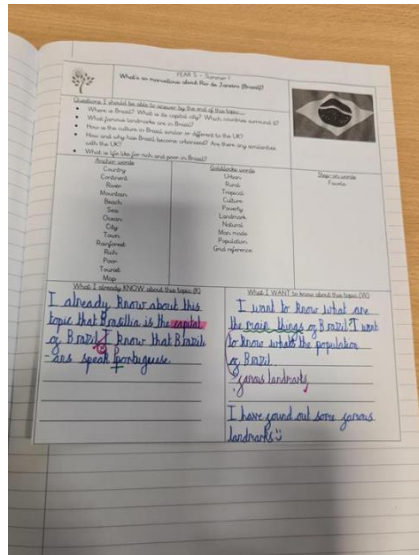 YEAR 5 - Summer 1
What's so marvellous about Rio de Janeiro (Brazil)?
Questions I should be able to answer by the end of this topic...
Where is Brazil? What is its capital city? Which countries surround it?
What famous landmarks are in Brazil?
How is the culture in Brazil similar or different to the UK?
How and why has Brazil become urbanised? Are there any similarities
with the UK?
What is life like for rich and poor in Brazil?
Anchor words
Country
Continent
River
Mountain
Beach
Sea
Ocean
City
Town
Rainforest
Rich
Poor
Tourist
Map
Goldilocks words
Urban
Rural
Tropical
Culture
Poverty
Landmark
Natural
Man made
Population
Grid reference
Step on words
Favela
What I already KNOW about this topic (K)
I already know about this
topic that Brasillia is the capital
of Brazil. I know that Brazils
ans speak portuguese.
What I WANT to know about this topic (W)
I want to know what are
the main things of Brazil? I want
to know whats the population
of Brazil.
famous landmarks
I have found out some famous
landmarks